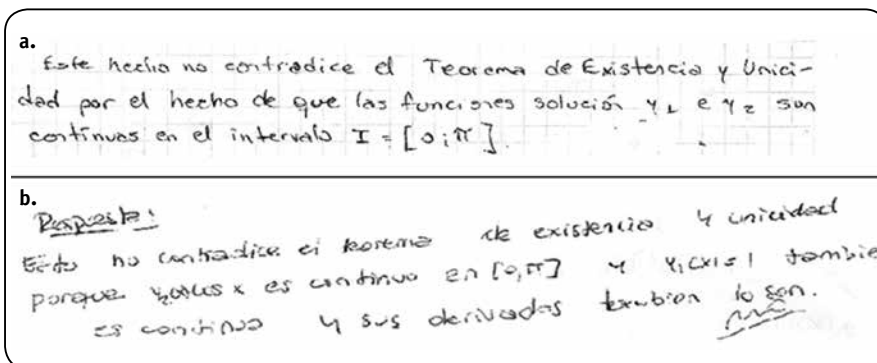 a.
Este hecho no contradice el Teorema de Existencia y Unici-
dad por el hecho de que las funciones solución y₁ e y₂ son
continuas en el intervalo I = [0; π].
b.
Respuesta:
Esto no contradice el teorema de existencia y unicidad
porque cos x es continuo en [0, π] y y₁(x)=1 tambie
es continuo y sus derivadas tambien lo son.